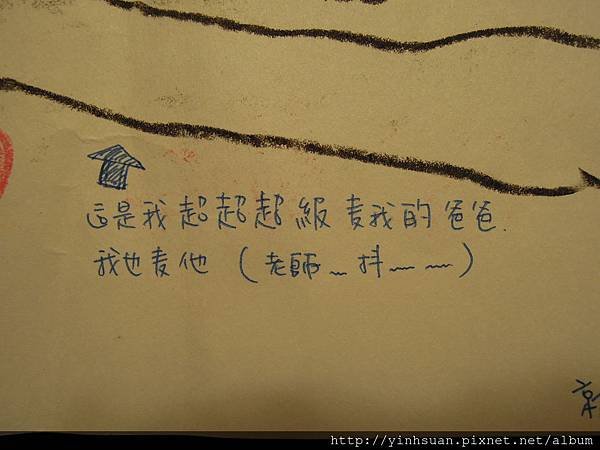 這是我超超超級愛我的爸爸.
我也愛他 (老師~抖~~)
http://yinhsuan.pixnet.net/album